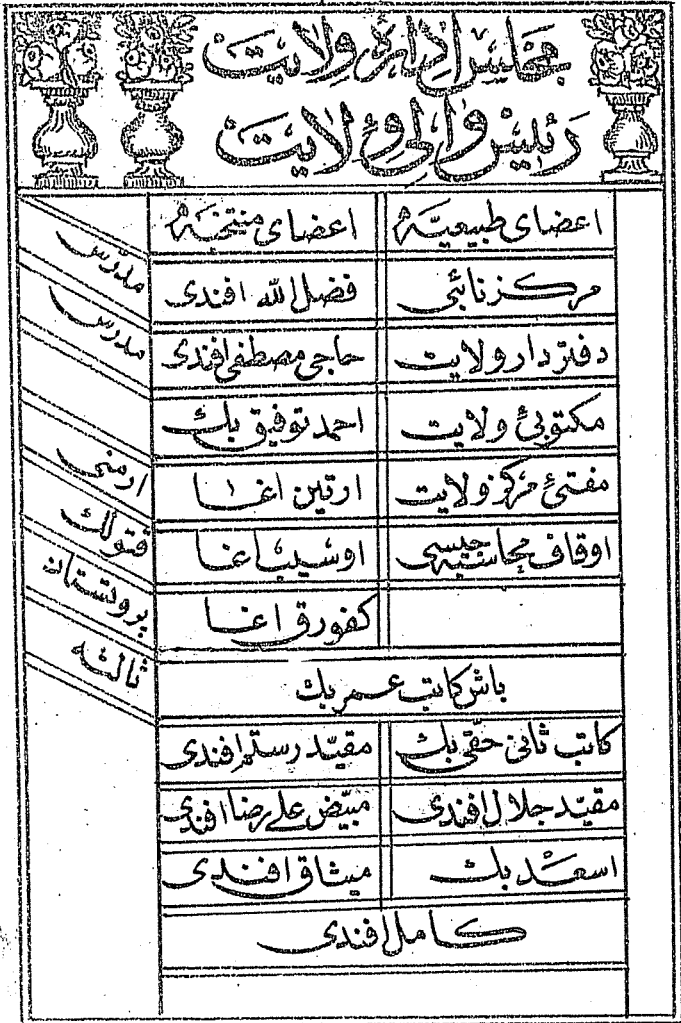 مجلس ادارهٔ ولایت
رئیس والیٔ ولایت
اعضای طبیعیه اعضای منتخبه
مرکز نائبی فضل الله افندی مدرس
دفتردار ولایت حاجی مصطفی افندی مدرس
مکتوبیٔ ولایت احمد توفیق بك
مفتیٔ مرکز ولایت ارتین اغا ارمنی
اوقاف محاسبه جیسی اوسیب اغا قتولك
کفورق اغا پروتستان
باش کاتب عمر بك ثالثه
کاتب ثانی حقی بك مقید رستم افندی
مقید جلال افندی مبیض علی رضا افندی
اسعد بك میثاق افندی
کامل افندی